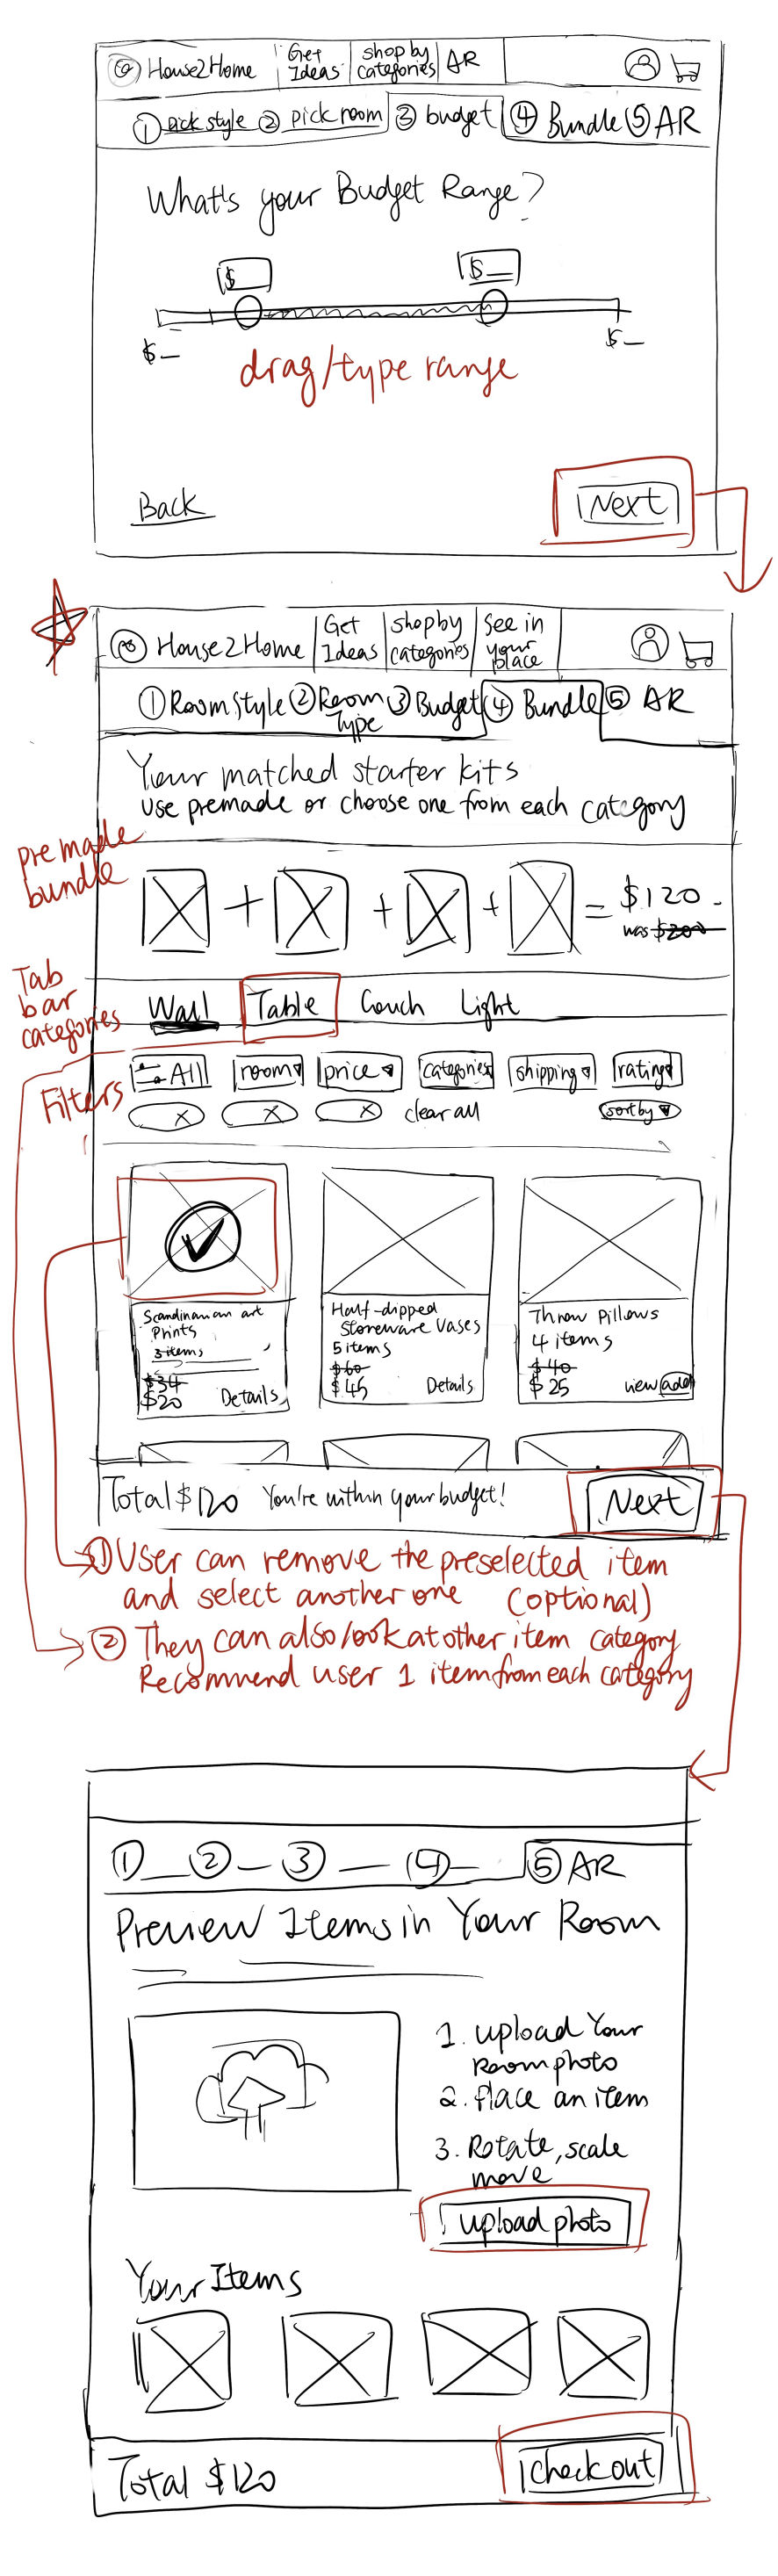 House2Home
Get Ideas
shop by categories
AR
① pick style ② pick room ③ budget ④ Bundle ⑤ AR
What's your Budget Range?
$
$_
$_
$_
drag/type range
Back
Next
House2Home
Get Ideas
shop by categories
See in your place
① Room Style ② Room Type ③ Budget ④ Bundle ⑤ AR
Your matched starter kits
use premade or choose one from each category
premade bundle
+ + + = $120
was $200
Tab bar categories
Wall Table Couch Light
Filters
All room price categories shipping rating
x x x clear all sort by
Scandinavian art
Prints
3 items
$34
$20 Details
Half-dipped
Stoneware Vases
5 items
$60
$45 Details
Throw Pillows
4 items
$40
$25 view add
Total $120 You're within your budget! Next
① User can remove the preselected item
and select another one (optional)
② They can also look at other item category
Recommend user 1 item from each category
① ② ③ ④ ⑤ AR
Preview Items in Your Room
1. upload Your
Room photo
2. Place an item
3. Rotate, scale
move
upload photo
Your Items
Total $120
check out